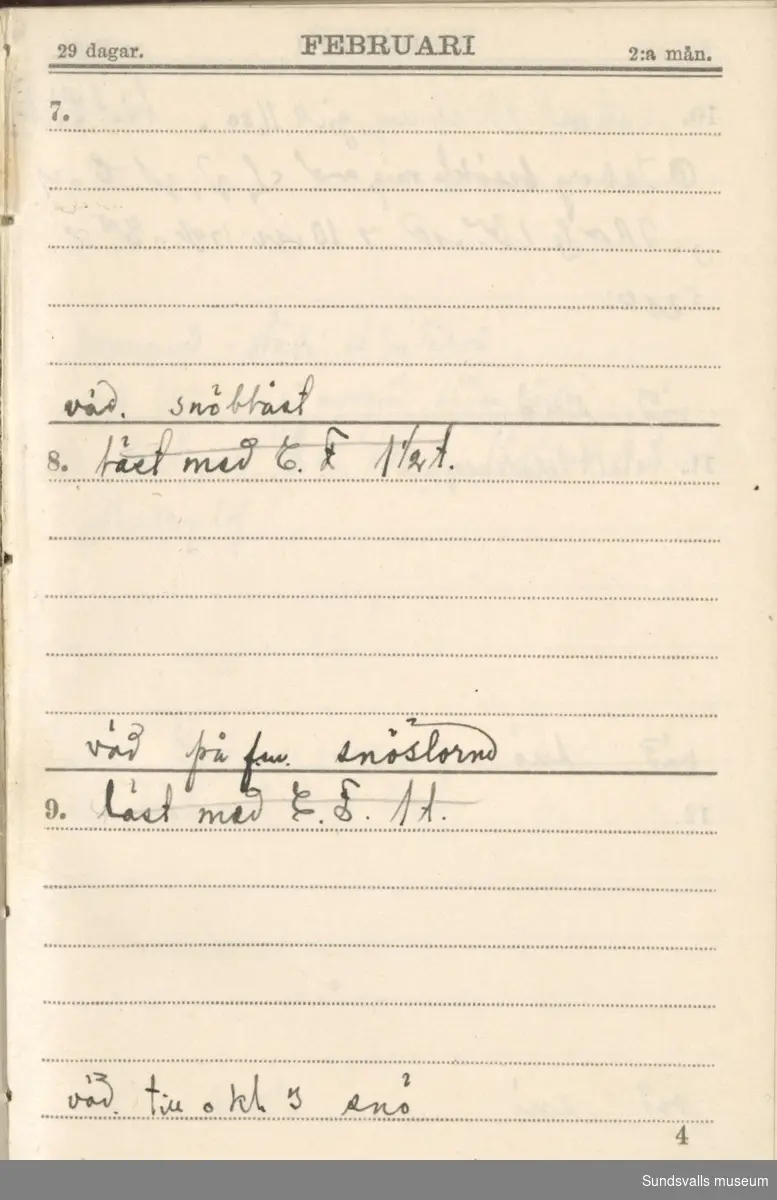 29 dagar. FEBRUARI 2:a mån.
7.
väd. snöblåst
8. läst med E. F 1 1/2 t.
väd på fm. snöstorm
9. läst med E. F. 1 t.
väd. till kl. 3 snö
4
Sundsvalls museum